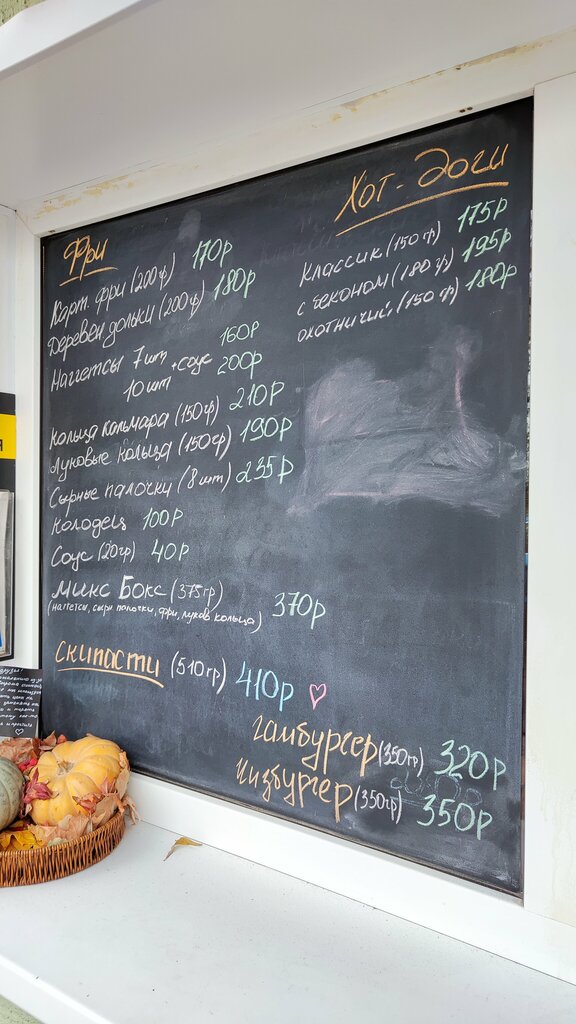 Фри
Карт. фри (200г) 170р
Деревен дольки (200г) 180р
Наггетсы 7шт +соус 160р
10шт 200р
Кольца кальмара (150гр) 210р
Луковые кольца (150гр) 190р
Сырные палочки (8шт) 235р
Колодец 100р
Соус (20гр) 40р
Микс Бокс (375гр) 370р
(наггетсы, сырн палочки, фри, луков кольца)
Скипасти (510гр) 410р
Хот-доги
Классик (150гр) 175р
с чеконом (180г) 195р
охотничий (150гр) 180р
гамбургер (350гр) 320р
Чизбургер (350гр) 350р